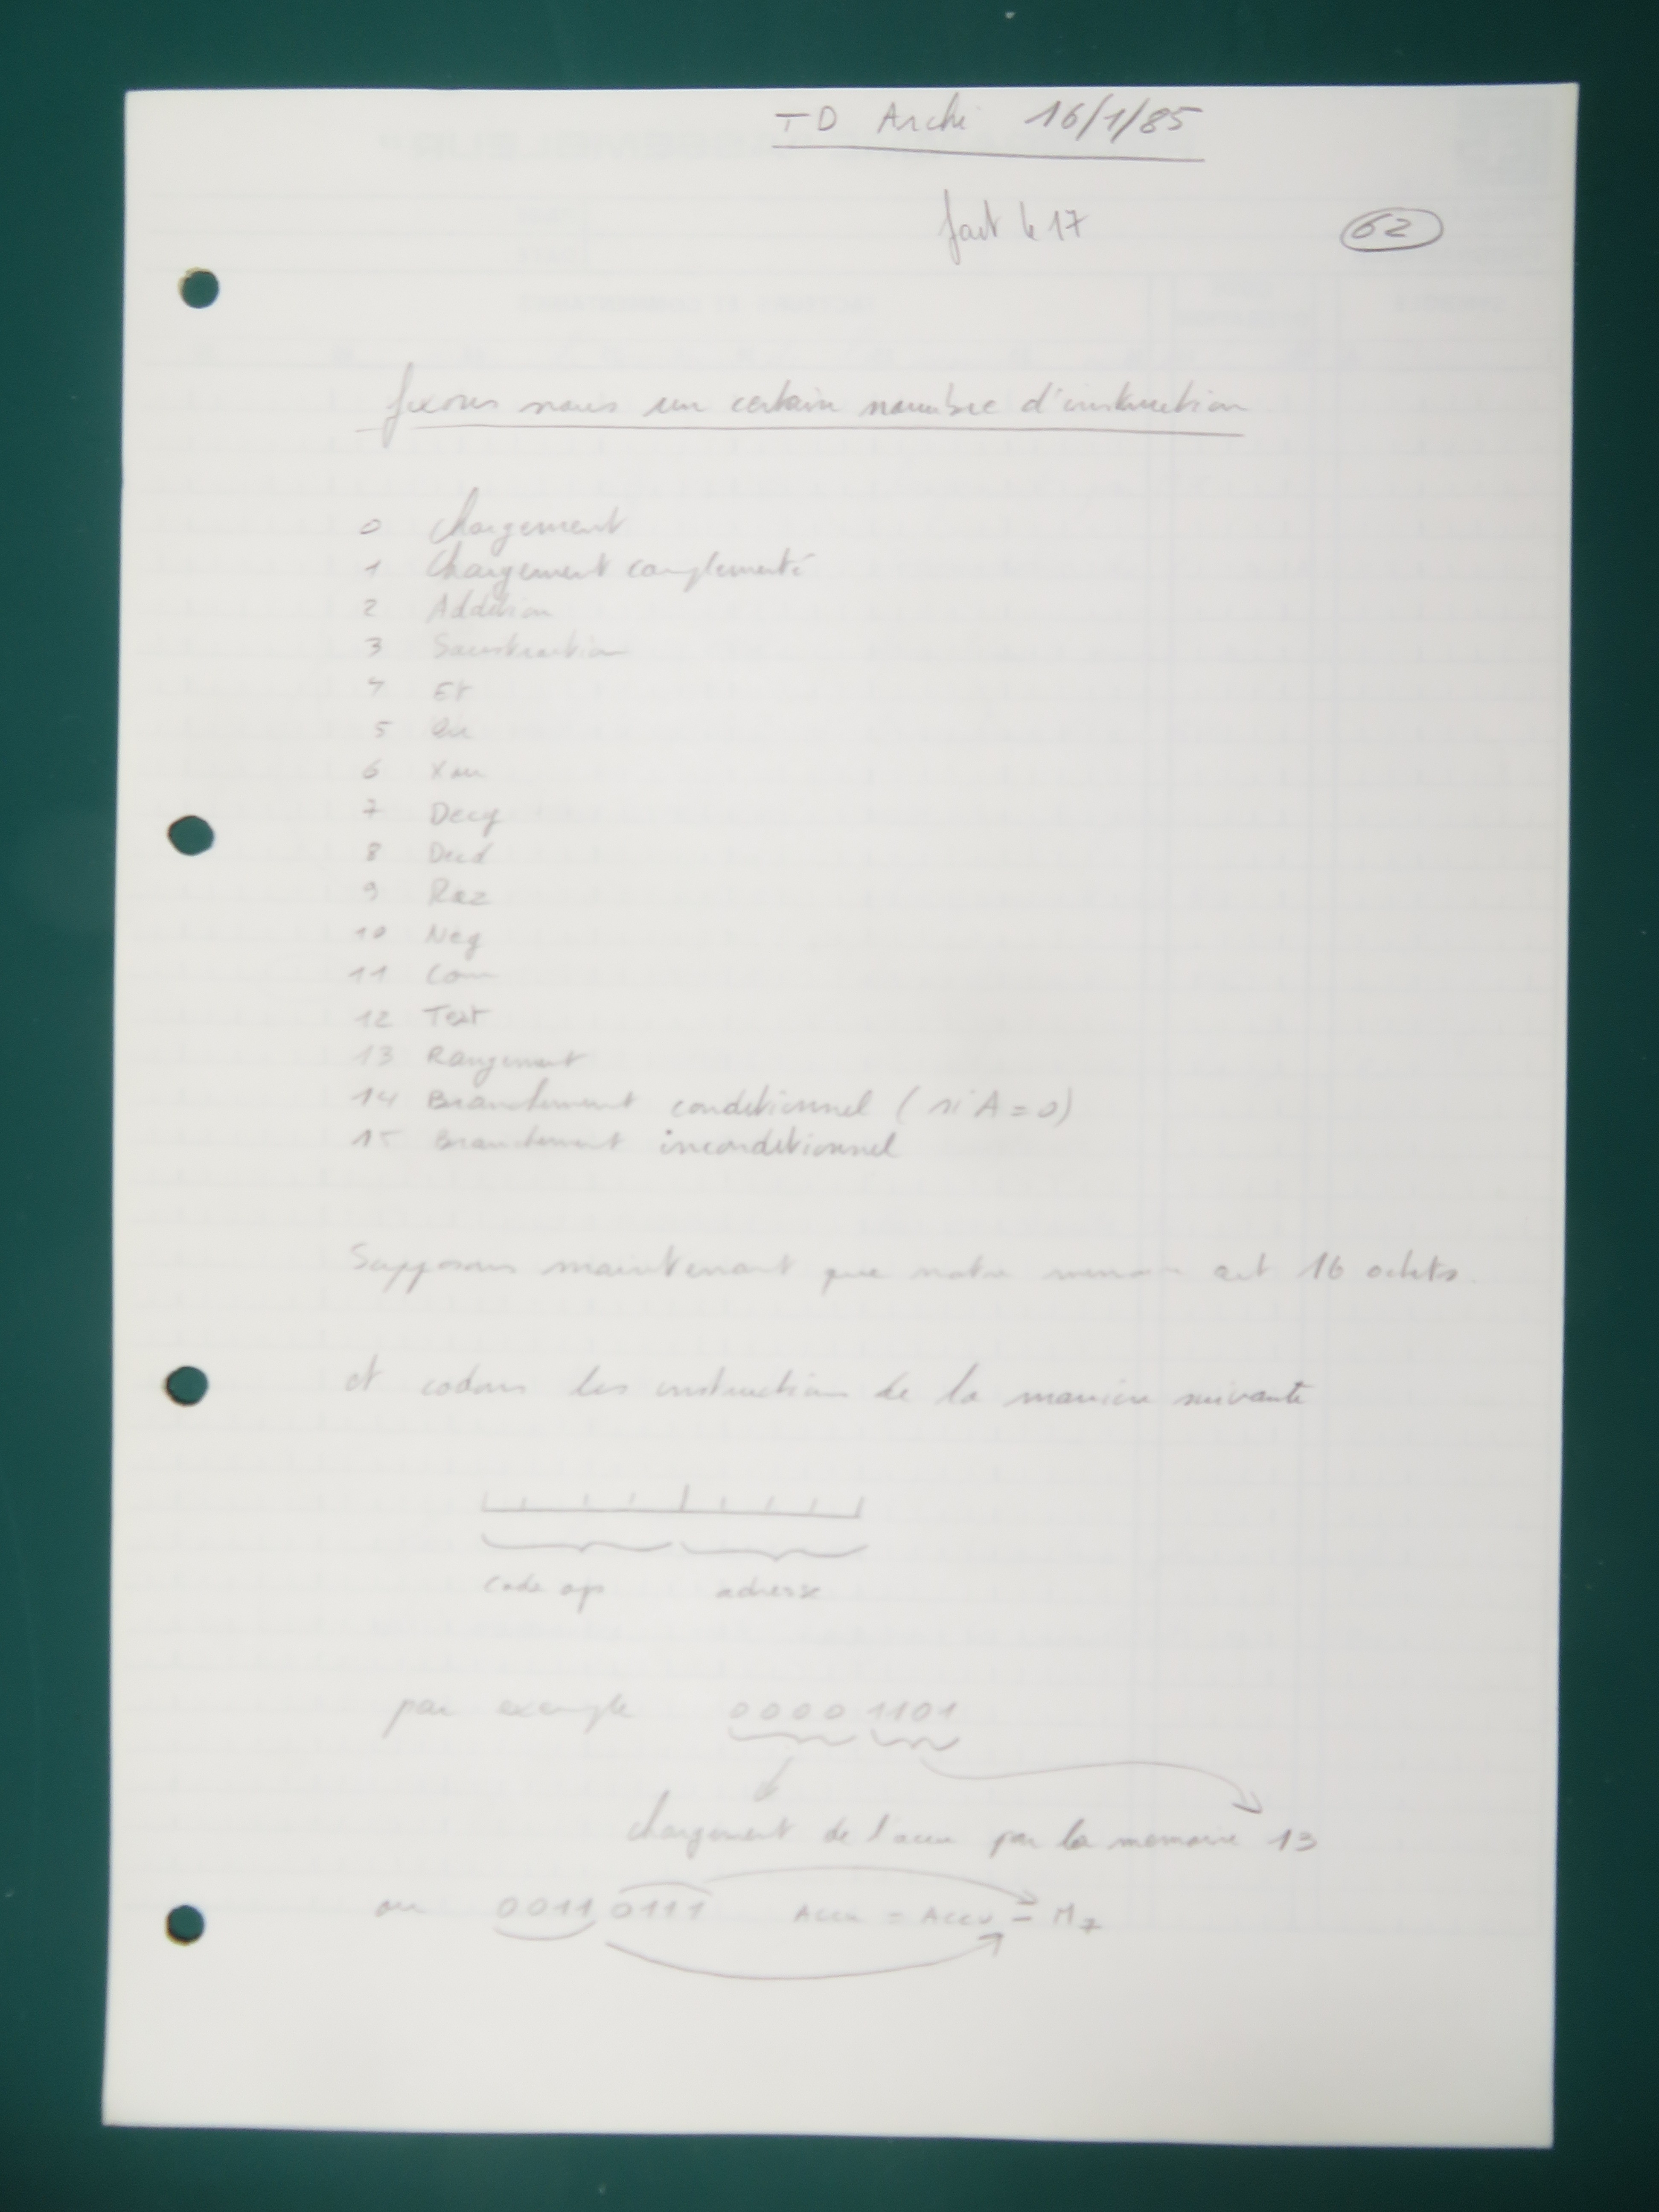 TD Archi 16/1/85
fait le 17
62
fixons nous un certain nombre d'instruction
0 Chargement
1 Chargement complementé
2 Addition
3 Soustraction
4 Et
5 Ou
6 Xou
7 Decg
8 Decd
9 Raz
10 Nég
11 Com
12 Test
13 Rangement
14 Branchement conditionnel (si A = 0)
15 Branchement inconditionnel
Supposons maintenant que notre memoire ait 16 octets.
et codons les instructions de la manière suivante
code op adresse
par exemple 0000 1101
chargement de l'accu par la memoire 13
ou 0011 0111 Accu = Accu - M7